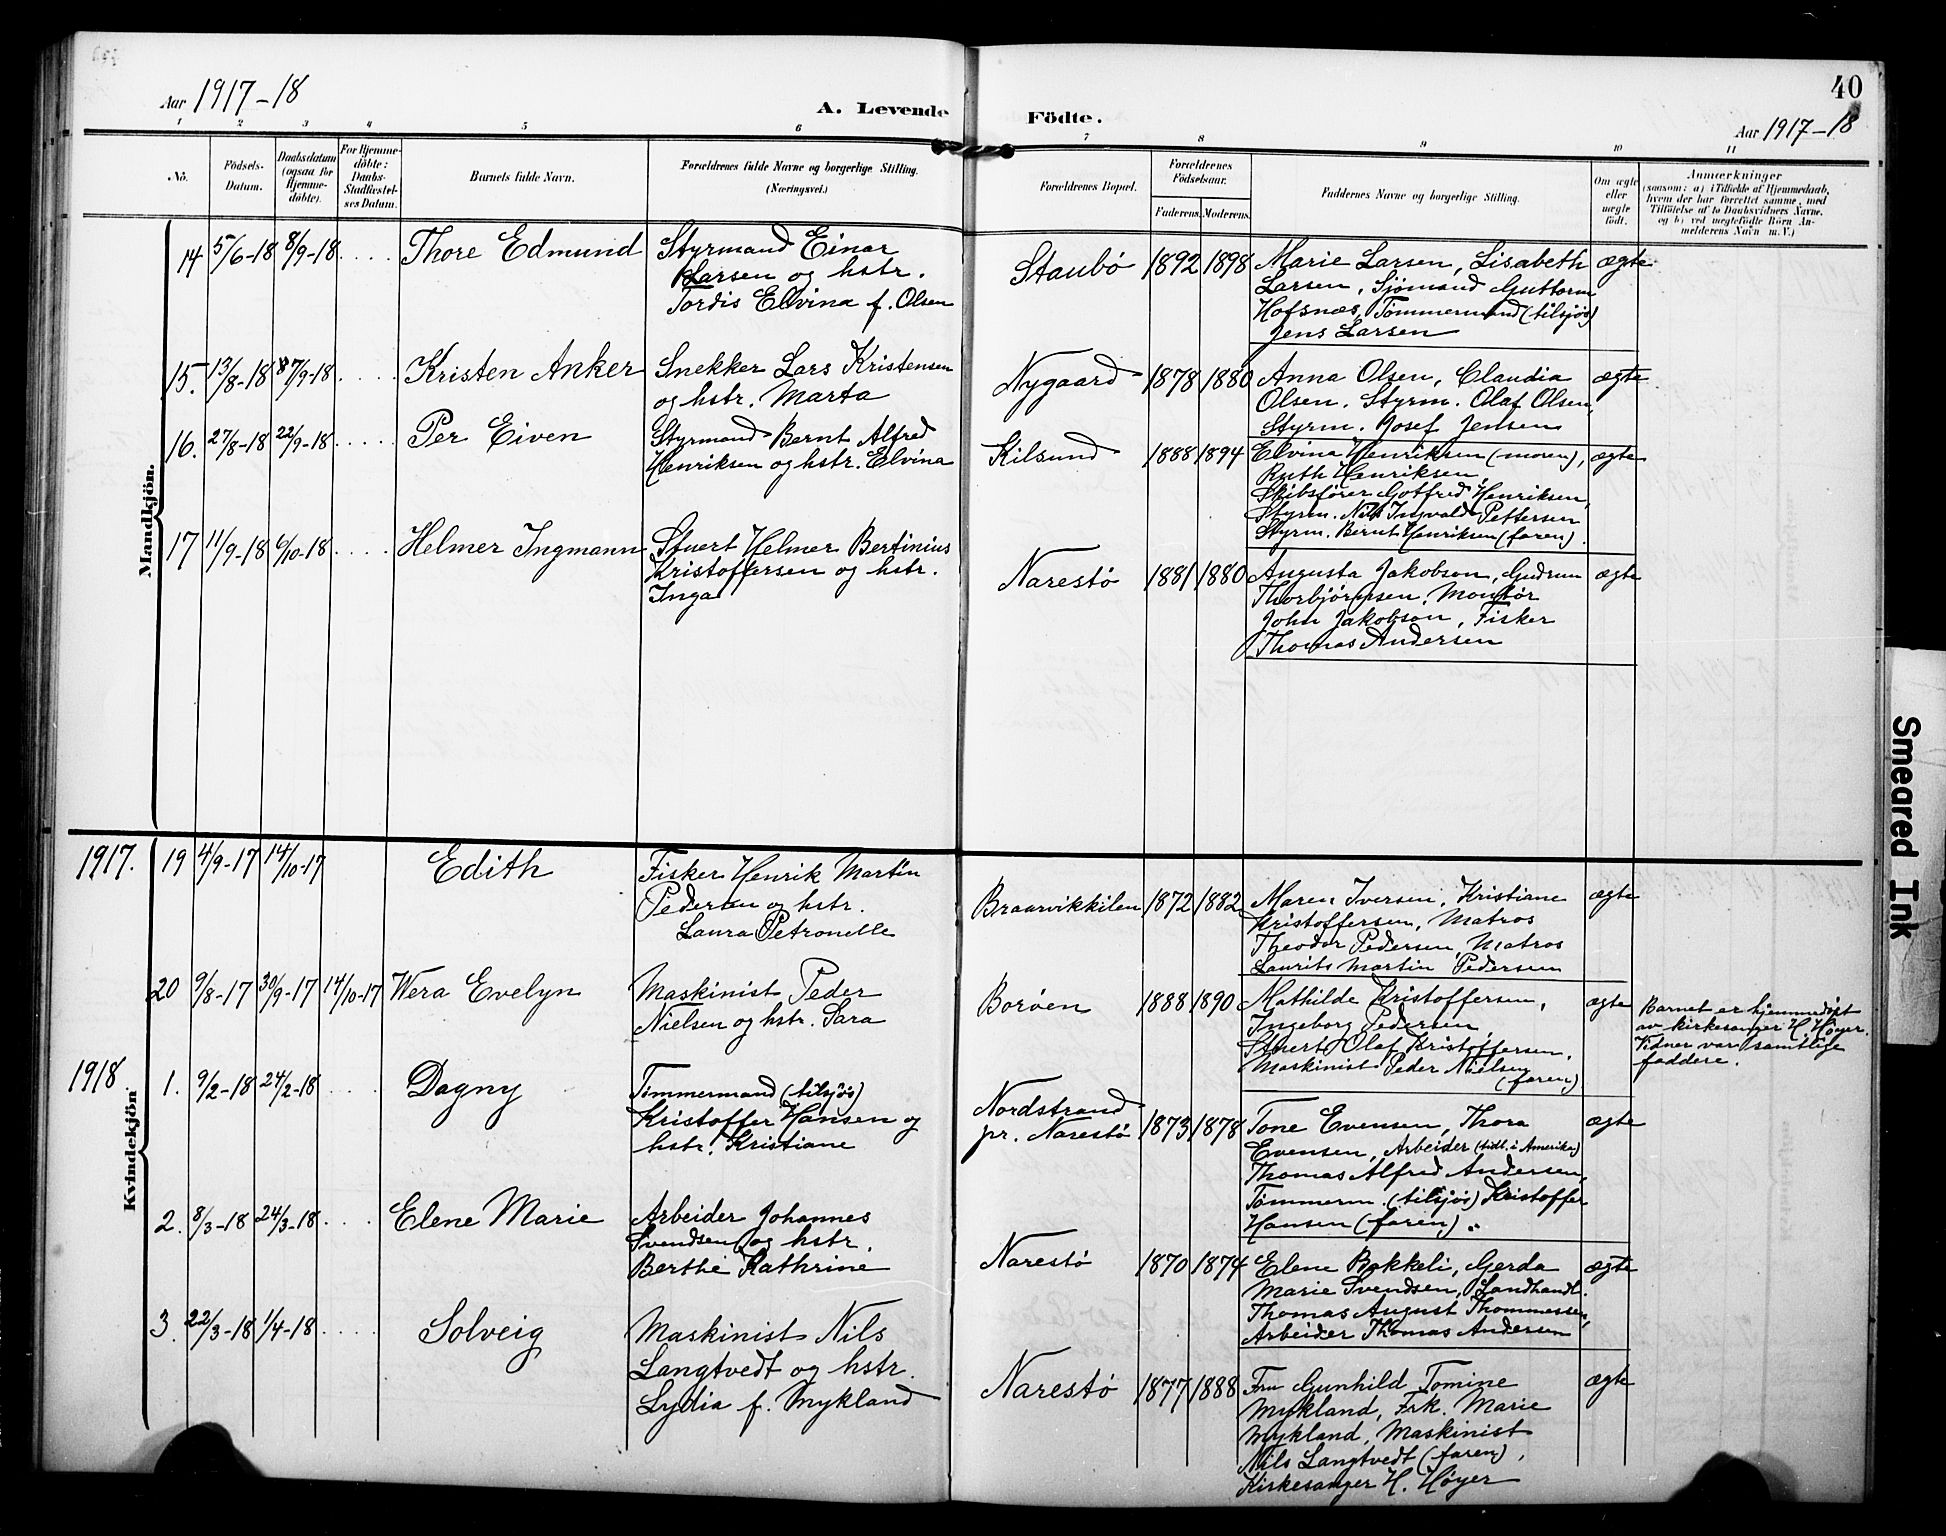 40
Aar 1917-18
A. Levende Födte.
Aar 1917-18
1 2 3 4 5 6 7 8 9 10 11
No.
Födsels-
Datum.
Daabsdatum
(ogsaa for
Hjemme-
döbte).
For Hjemme-
döbte:
Daabs-
Stadfæstel-
ses Datum.
Barnets fulde Navn.
Forældrenes fulde Navne og borgerlige Stilling.
(Næringsvei.)
Forældrenes Bopæl.
Forældrenes
Födselsaar.
Faderens. Moderens.
Faddernes Navne og borgerlige Stilling.
Om ægte
eller
uægte
födt.
Anmærkninger
(saasom: a) i Tilfælde af Hjemmedaab,
hvem der har forrettet samme, med
Tilföielse af to Daabsvidners Navne,
og b) ved uægtefödte Börn An-
melderens Navn m. V.)
Mandkjön.
14 5/6-18 8/9-18 Thore Edmund
Styrmand Einar
Larsen og hstr.
Tordis Elvina f. Olsen
Staubø 1892 1898
Marie Larsen, Lisabeth
Larsen, Sjømand Guttorm
Hofsnæs, Tømmermand (tilsjøs)
Jens Larsen
ægte
15. 13/8-18 8/9-18 Kristen Anker
Snekker Lars Kristensen
og hstr. Marta
Nygaard 1878 1880
Anna Olsen, Claudia
Olsen, Styrm. Olaf Olsen,
Styrm. Josef Jensen
ægte
16. 27/8-18 22/9-18 Per Eiven
Styrmand Bernt Alfred
Henriksen og hstr. Elvina
Kilsund 1888 1894
Elvina Henriksen (moren),
Ruth Henriksen,
Skibsfører Gotfred Henriksen,
Styrm. Nils Ingvald Pettersen
Styrm. Bernt Henriksen (faren).
ægte
17 11/9-18 6/10-18 Helmer Ingmann
Stuert Helmer Bertinius
Kristoffersen og hstr.
Inga
Narestø 1881 1880
Augusta Jakobson, Gudrun
Thorbjørnsen, Montør
John Jakobson, Fisker
Thomas Andersen
ægte
Kvindekjön
1917. 19 4/9-17 14/10-17 Edith
Fisker Henrik Martin
Pedersen og hstr.
Laura Petronelle
Braarvikkilen 1872 1882
Maren Iversen, Kristiane
Kristoffersen, Matros
Theodor Pedersen, Matros
Laurits Martin Pedersen
ægte
20 9/8-17 30/9-17 14/10-17 Wera Evelyn
Maskinist Peder
Nielsen og hstr. Sara
Borøen 1888 1890
Mathilde Kristoffersen,
Ingeborg Pedersen,
Stuert Olaf Kristoffersen,
Maskinist Peder Nielsen
(faren)
ægte
Barnet er hjemmedøpt
av kirkesanger H. Høyer.
Vidner var samtlige
faddere.
1918 1. 9/2-18 24/2-18 Dagny
Timmermand (tilsjøs)
Kristoffer Hansen og
hstr. Kristiane
Nordstrand
pr. Narestø 1873 1878
Tone Evensen, Thora
Evensen, Arbeider (tidl. i Amerika)
Thomas Alfred Andersen,
Tømmerm. (tilsjøs) Kristoffer
Hansen (faren).
ægte
2. 8/3-18 24/3-18 Elene Marie
Arbeider Johannes
Svendsen og hstr.
Berthe Kathrine
Narestø 1870 1874
Elene Bakkeli, Gerda
Marie Svendsen, Landhandl.
Thomas August Thommessen,
Arbeider Thomas Andersen
ægte
3. 22/3-18 1/4-18 Solveig
Maskinist Nils
Langtvedt og hstr.
Lydia f. Mykland
Narestø 1877 1888
Fru Gunhild Tomine
Mykland, Frk. Marie
Mykland, Maskinist
Nils Langtvedt (faren),
Kirkesanger H. Høyer
ægte
Smeared Ink